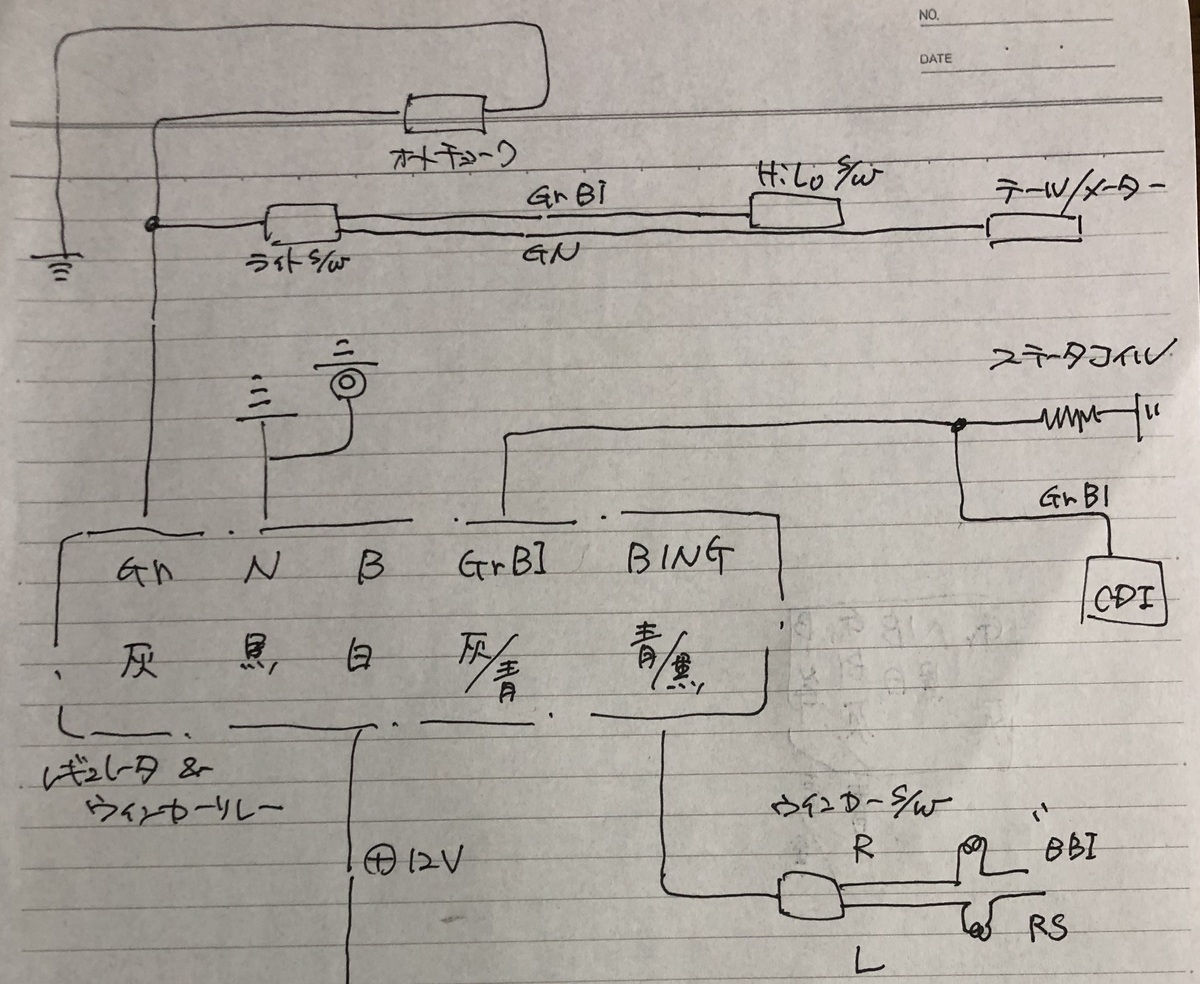 NO.
DATE
オートチョーク
Hi Lo S/W
テール/メーター
GrBl
ライト S/W
GN
ステータコイル
GrBl
CDI
Gn N B GrBl BING
灰 黒 白 灰/青 青/黒
レギュレータ &
ウインカーリレー
⊕12V
ウインカーS/W
R
BBl
RS
L